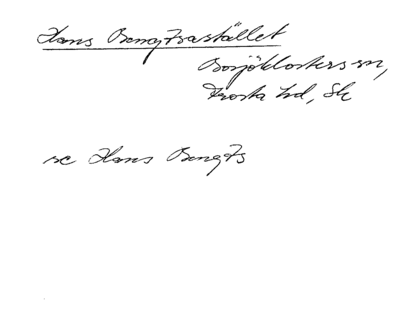 Hans Bengtsastället
Bosjöklosters sn,
Frosta hd, Sk
se Hans Bengts